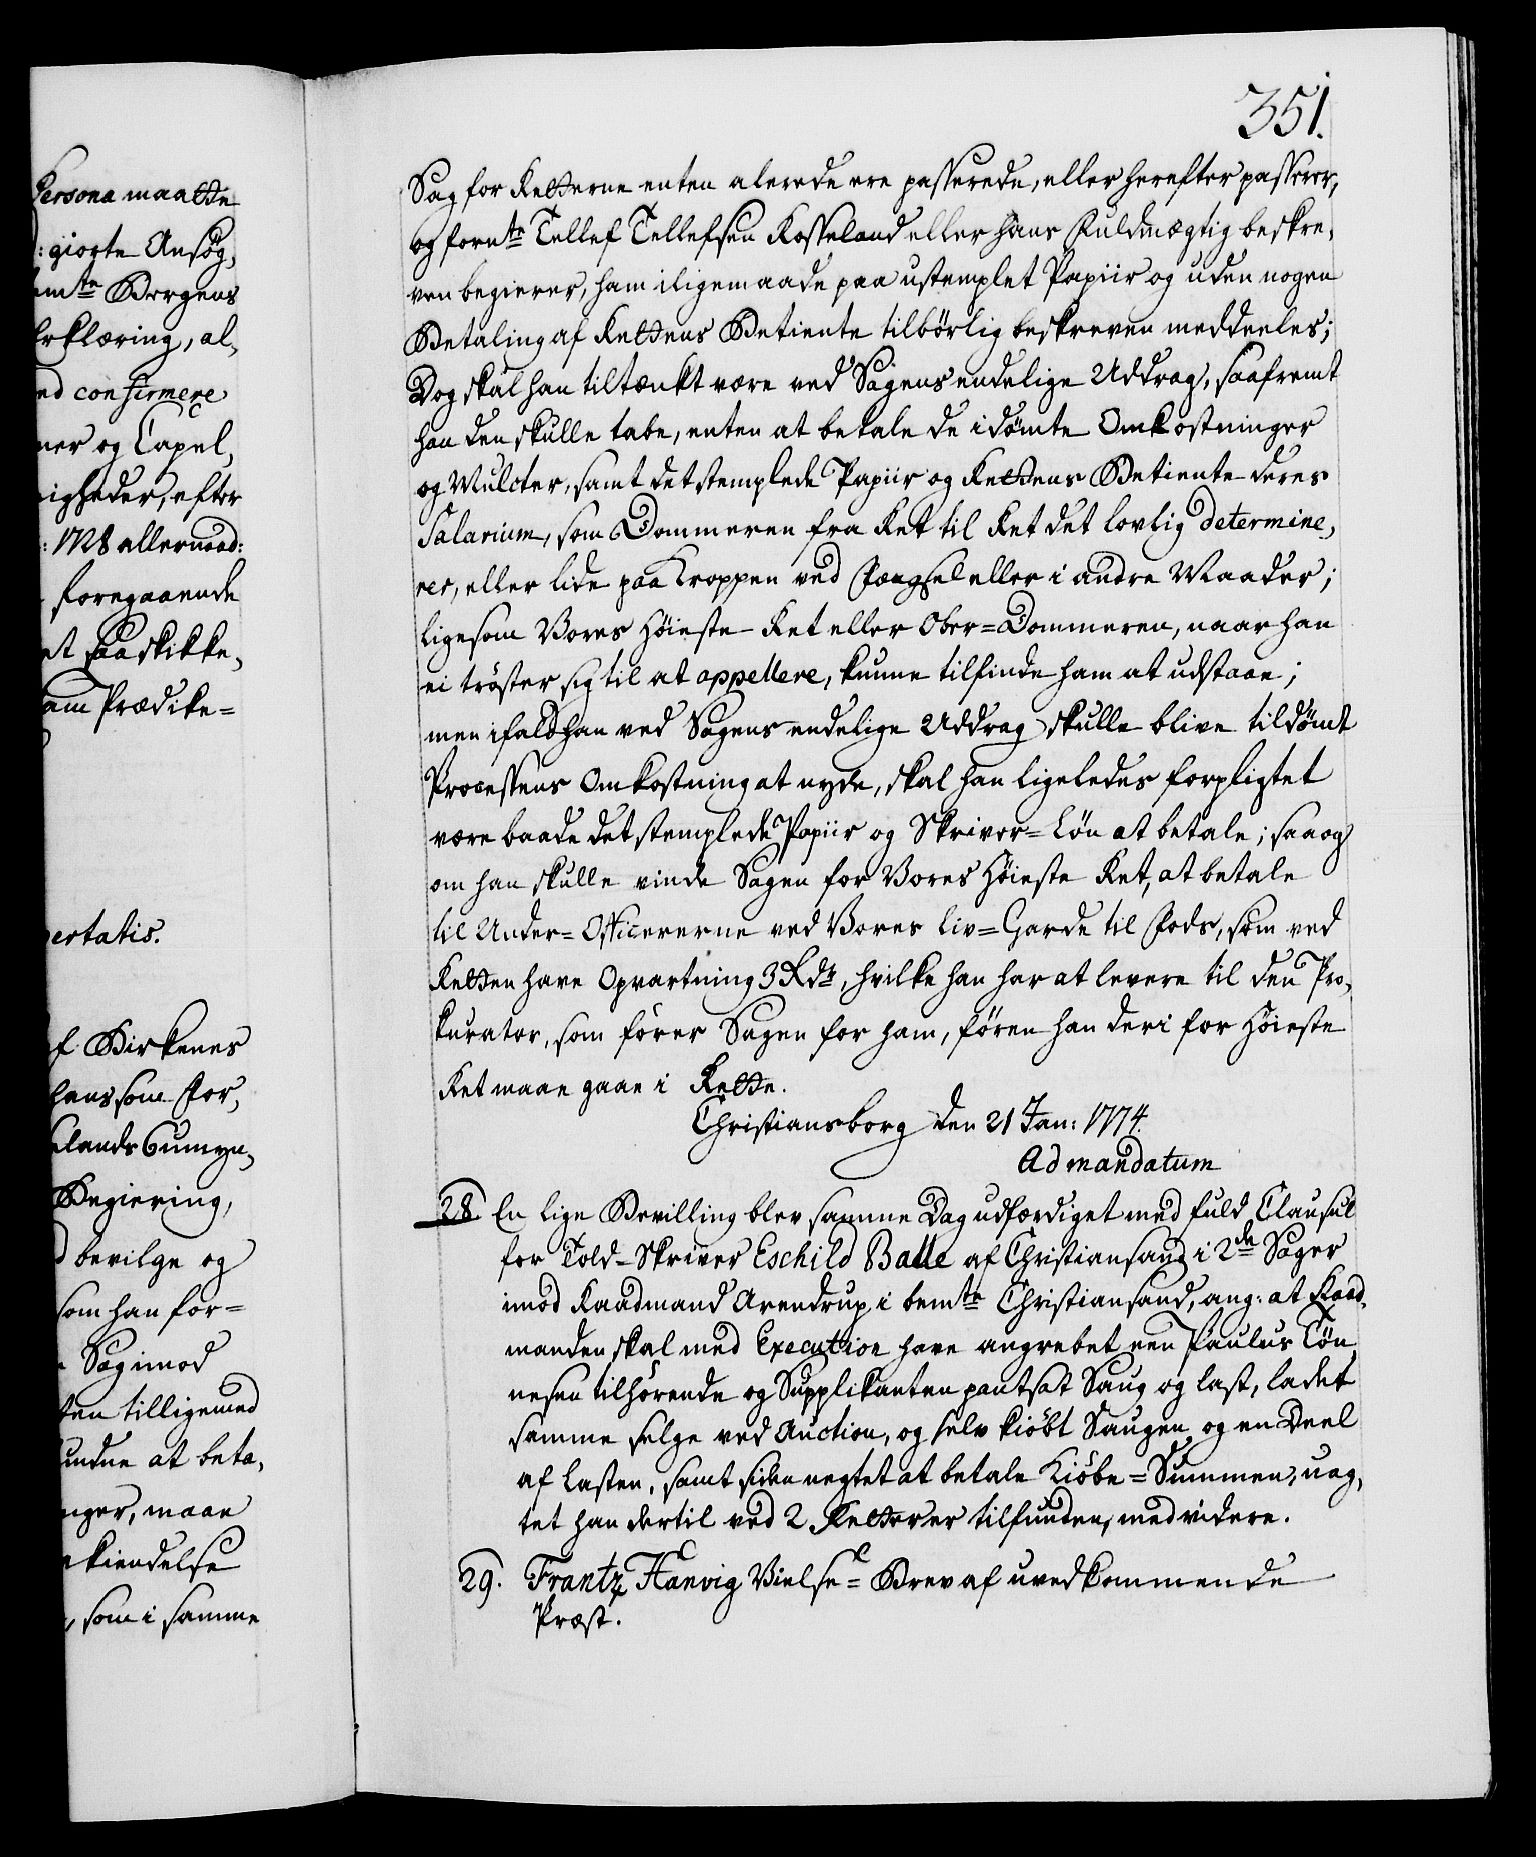 Persona maatte
: giorte Ansøg,
mte Bergens
Erklæring, al,
ed confirmere
ner og Capel,
igheder, efter
: 1728 allernaad:
foregaaende
et saa skikke,
am Prædike=
ertatis.
f Birkenes
hans som For,
lands Gumyn,
Begiering,
d bevilge og
som han for=
Sag imod
ten tilligemed
undne at beta,
nger, maae
kiendelse
, som i samme
351.
Sag for Retterne enten alerede ere passerede, eller herefter passerer,
og fornte Tellef Tellefsen Kosseland eller hans Fuldmægtig beskre,
ven begierer, ham iligemaade paa ustemplet Papiir og uden nogen
Betaling af Rettens Betiente tilbørlig beskreven meddeeles;
Dog skal han tiltænkt være ved Sagens endelige Uddrag, saafremt
han den skulle tabe, enten at betale de idømte Omkostninger
og Mulcter, samt det stemplede Papiir og Rettens Betiente deres
Salarium, som Dommeren fra Ret til Ret det lovlig determine,
rer, eller lide paa Kroppen ved Fængsel eller i andre Maader;
ligesom Vores Høieste Ret eller Ober=Dommeren, naar han
ei trøster sig til at appellere, kunne tilfinde ham at udstaae;
men ifald han ved Sagens endelige Uddrag skulle blive tildømt
Processens Omkostning at nyde, skal han ligeledes forpligtet
være baade det stemplede Papiir og Skriver=Løn at betale; saa og
om han skulle vinde Sagen for Vores Høieste Ret, at betale
til Under=Officererne ved Vores Liv=Garde til Fods, som ved
Retten have Opvartning 3 Rdr, hvilke han har at levere til den Pro,
kurator, som fører Sagen for ham, føren han deri for Høieste
Ret maae gaae i Rette.
Christiansborg den 21 Jan: 1774.
Ad mandatum
28 En lige Bevilling blev samme Dag udfærdiget med fuld Clausul
for Told-Skriver Eschild Balle af Christiansand i 2de Sager
imod Raadmand Arendrup i bemte Christiansand, ang: at Raad,
manden skal med Execution have angrebet een Paulus Tøn,
nesen tilhørende og Supplikanten pantsat Saug og Last, ladet
samme selge ved Auction, og selv kiøbt Saugen og en Deel
af Lasten, samt siden negtet at betale Kiøbe=Summen, uag,
tet han dertil ved 2 Retter er tilfunden, med videre.
29. Frantz Hanvig Vielse=Brev af uvedkommende
Præst.